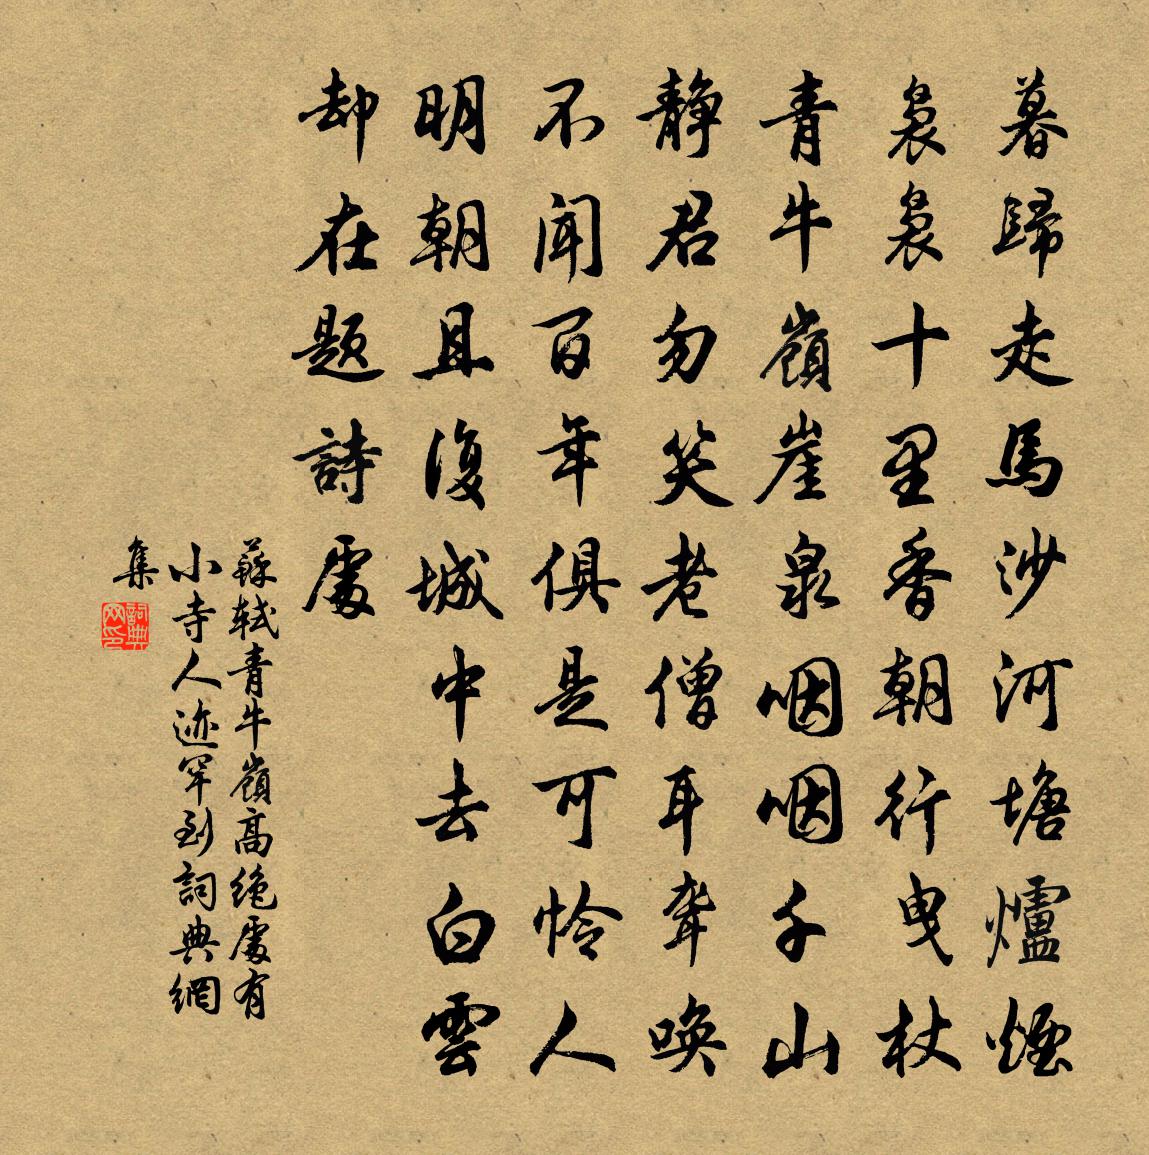 暮歸走馬沙河塘爐煙
裊裊十里香朝行曳杖
青牛嶺崖泉咽咽千山
靜君勿笑老僧耳聾喚
不聞百年俱是可怜人
明朝且復城中去白雲
却在題詩處
蘇軾青牛嶺高絕處有
小寺人迹罕到詞典網
集
詞典
网印